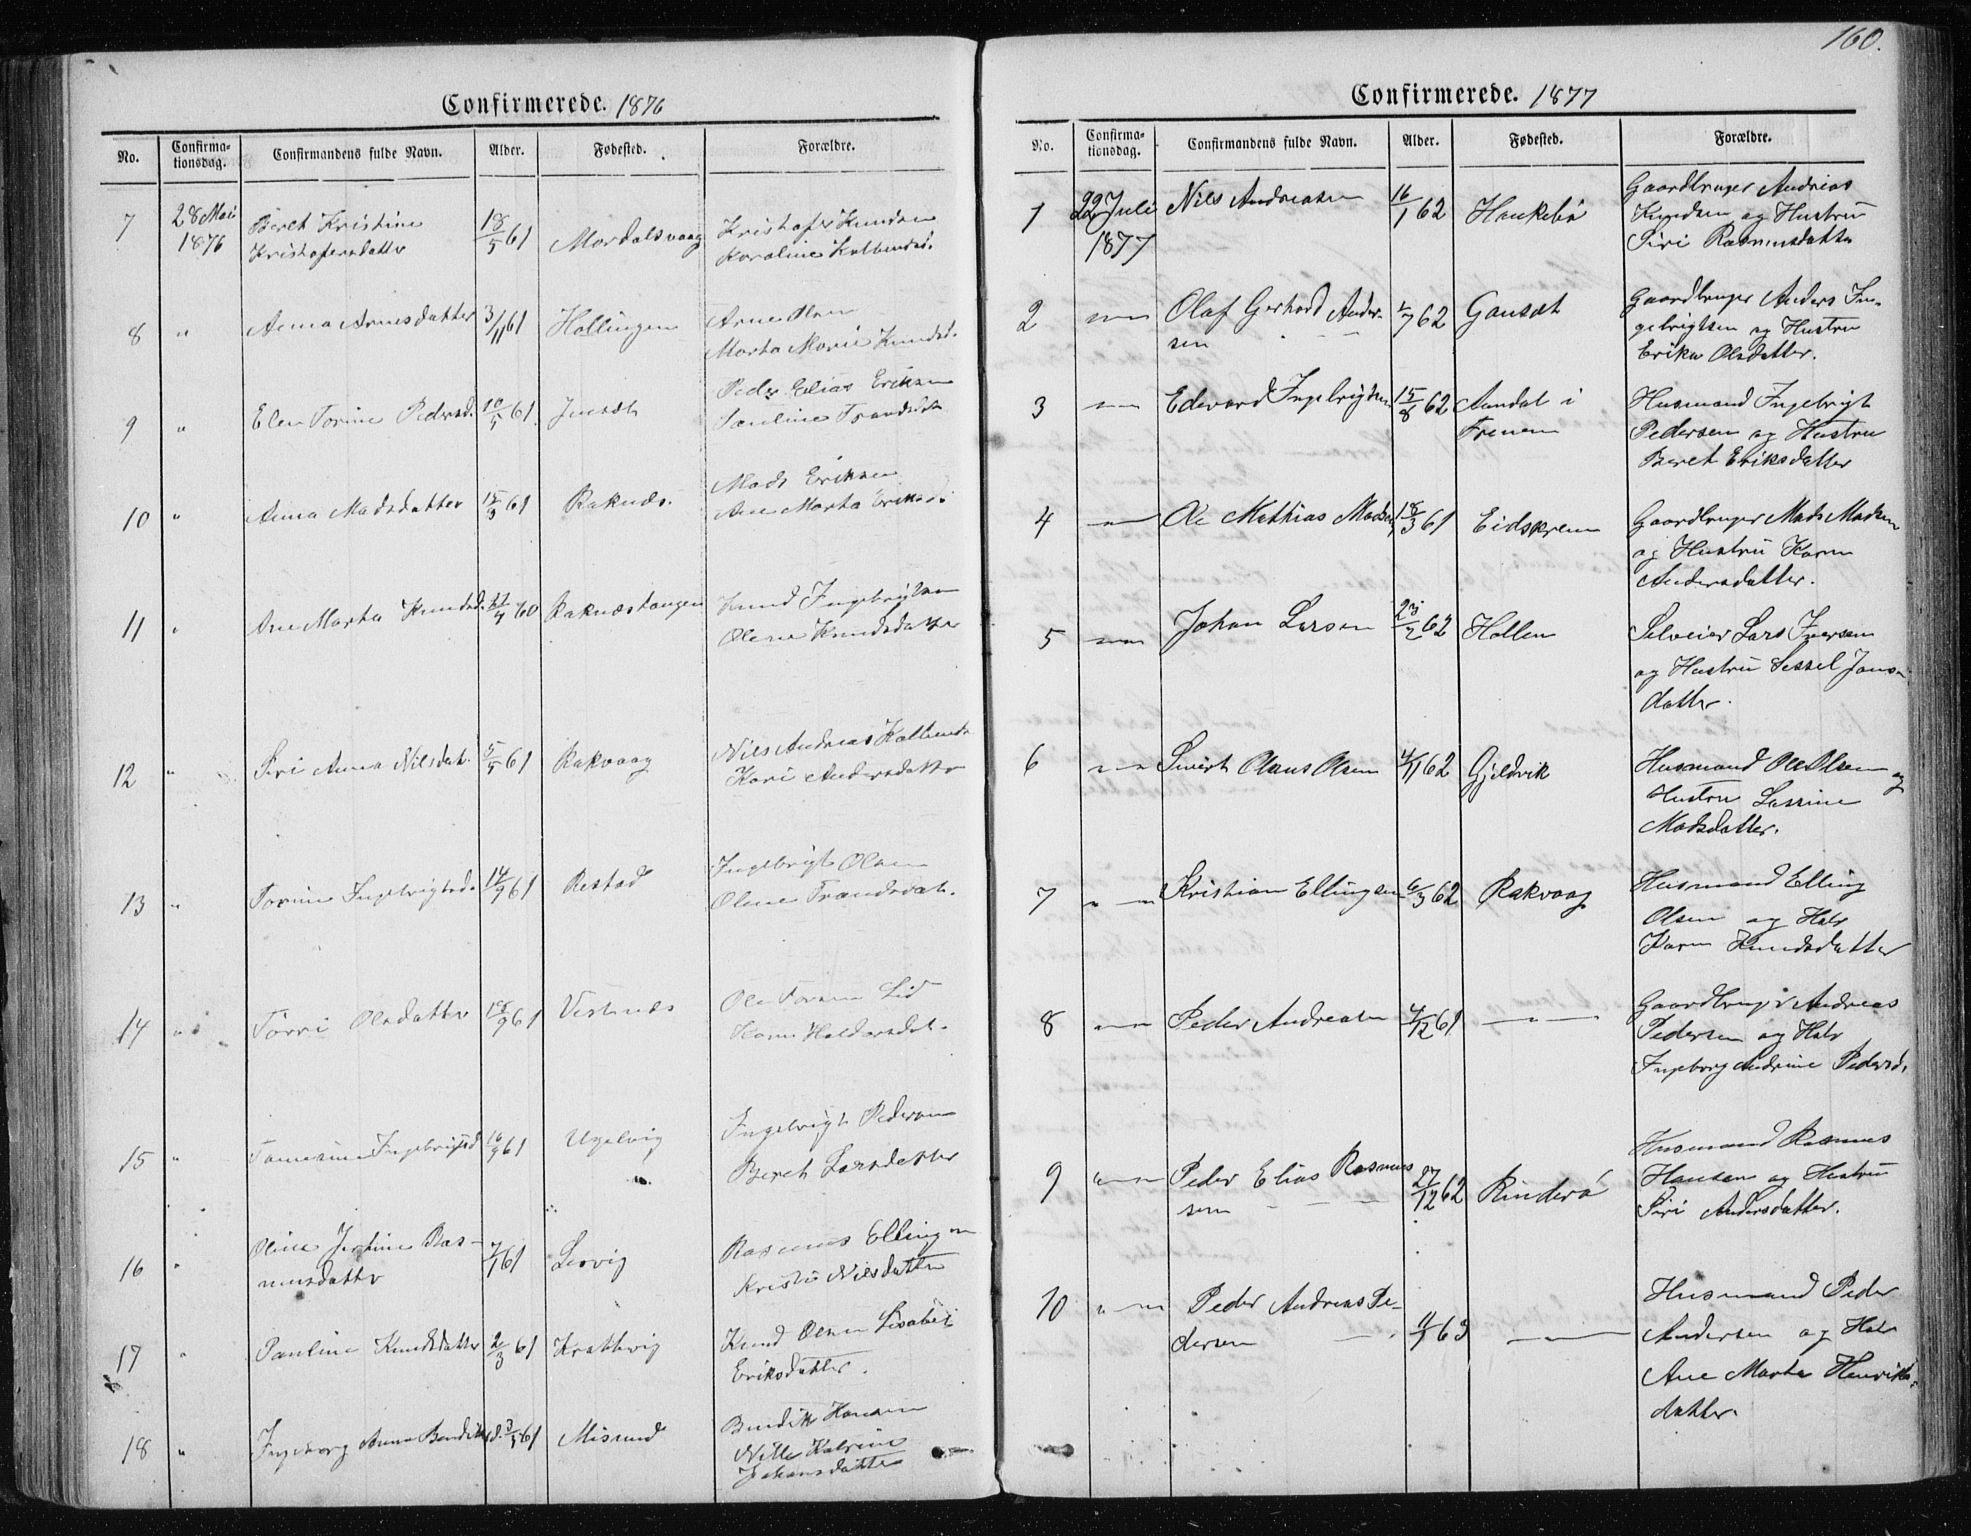 Confirmerede. 1876
No.
Confirma-
tionsdag.
Confirmandens fulde Navn.
Alder.
Fødested.
Forældre.
7
28 Mai
1876
Beret Kristine
Kristofersdatter
18/5 61
Mordalsvaag
Kristofer Knudsen
Karoline
8
"
Anna Arnesdatter
3/11 61
Hollingen
Arne Olsen
Marta Marie Knudsd.
9
"
Elen Torine Pedersd.
10/5 61
Jensæt
Peder Elias Eriksen
Pauline
10
"
Anna Madsdatter
15/3 61
Raknæs.
Mads Eriksen
Ane Marta Eriksd.
11
"
Ane Marta Knudsd.
60
Raknæstangen
Knud Ingebrigtsen
Olene Knudsdatter
12
"
Siri Anna Nilsdat.
5/5 61
Rakvaag
Nils Andreas
Kari Andersdatter
13
"
Torine Ingebrigtsd.
14/9 61
Restad
Ingebrigt Olsen
Olene
14
"
Olsdatter
61
Vestnæs
Ole Lid
Karen
15
"
Ingebrigtsd
16/9 61
Ugelvig
Ingebrigt Pedersen
Beret Larsdatter
16
"
Oline Ras-
musdatter
7/1 61
Lervig
Rasmus Ellingsen
Nilsdatter
17
"
Pauline Knudsdatter
2/3 61
Krathvig
Knud Olsen Lisabet
Eriksdatter.
18
"
Ingeborg Anna Bendiktsd.
3/5 61
Misund
Bendik Hansen
Nille Katrine
Johansdatter
160.
Confirmerede. 1877
No.
Confirma-
tionsdag.
Confirmandens fulde Navn.
Alder.
Fødested.
Forældre.
1
22 Juli
1877
Nils Andreasen
16/1 62
Haukebø
Gaardbruger Andreas
Knudsen og Hustru
Siri Rasmusdatter
2
Olaf Gerhard Ander-
sen
62
Gausæt
Gaardbruger Anders In-
gebrigtsen og Hustru
Erika Olsdatter.
3
Edevard Ingebrigtsen
15/8 62
Aandal i
Frenen
Husmand Ingebrigt
Pedersen og Hustru
Beret Eriksdatter
4
Ole Mathias Madsen
18/3 61
Eidskrem
Gaardbruger Mads Madsen
og Hustru Karen
Andersdatter.
5
Johan Larsen
62
Hollen
Selveier Lars Iversen
og Hustru Sessel Jons-
datter.
6
Sivert Claus Olsen
4/1 62
Gjeldvik
Husmand Ole Olsen og
Hustru
Madsdatter.
7
Kristian Ellingsen
6/3 62
Rakvaag
Husmand Elling
Olsen og Hstr
Karen Knudsdatter
8
Peder Andreasen
4/12 61
Gaardbruger Andreas
Pedersen og Hstr
Ingeborg Andrine Pedersd.
9
Peder Elias Rasmus
sen
27/12 62
Rinderø
Husmand Rasmus
Hansen og Hustru
Siri Andersdatter.
10
Peder Andreas Pe-
dersen
63
Husmand Peder
Andersen og Hstr
Ane Marta Henriks-
datter.